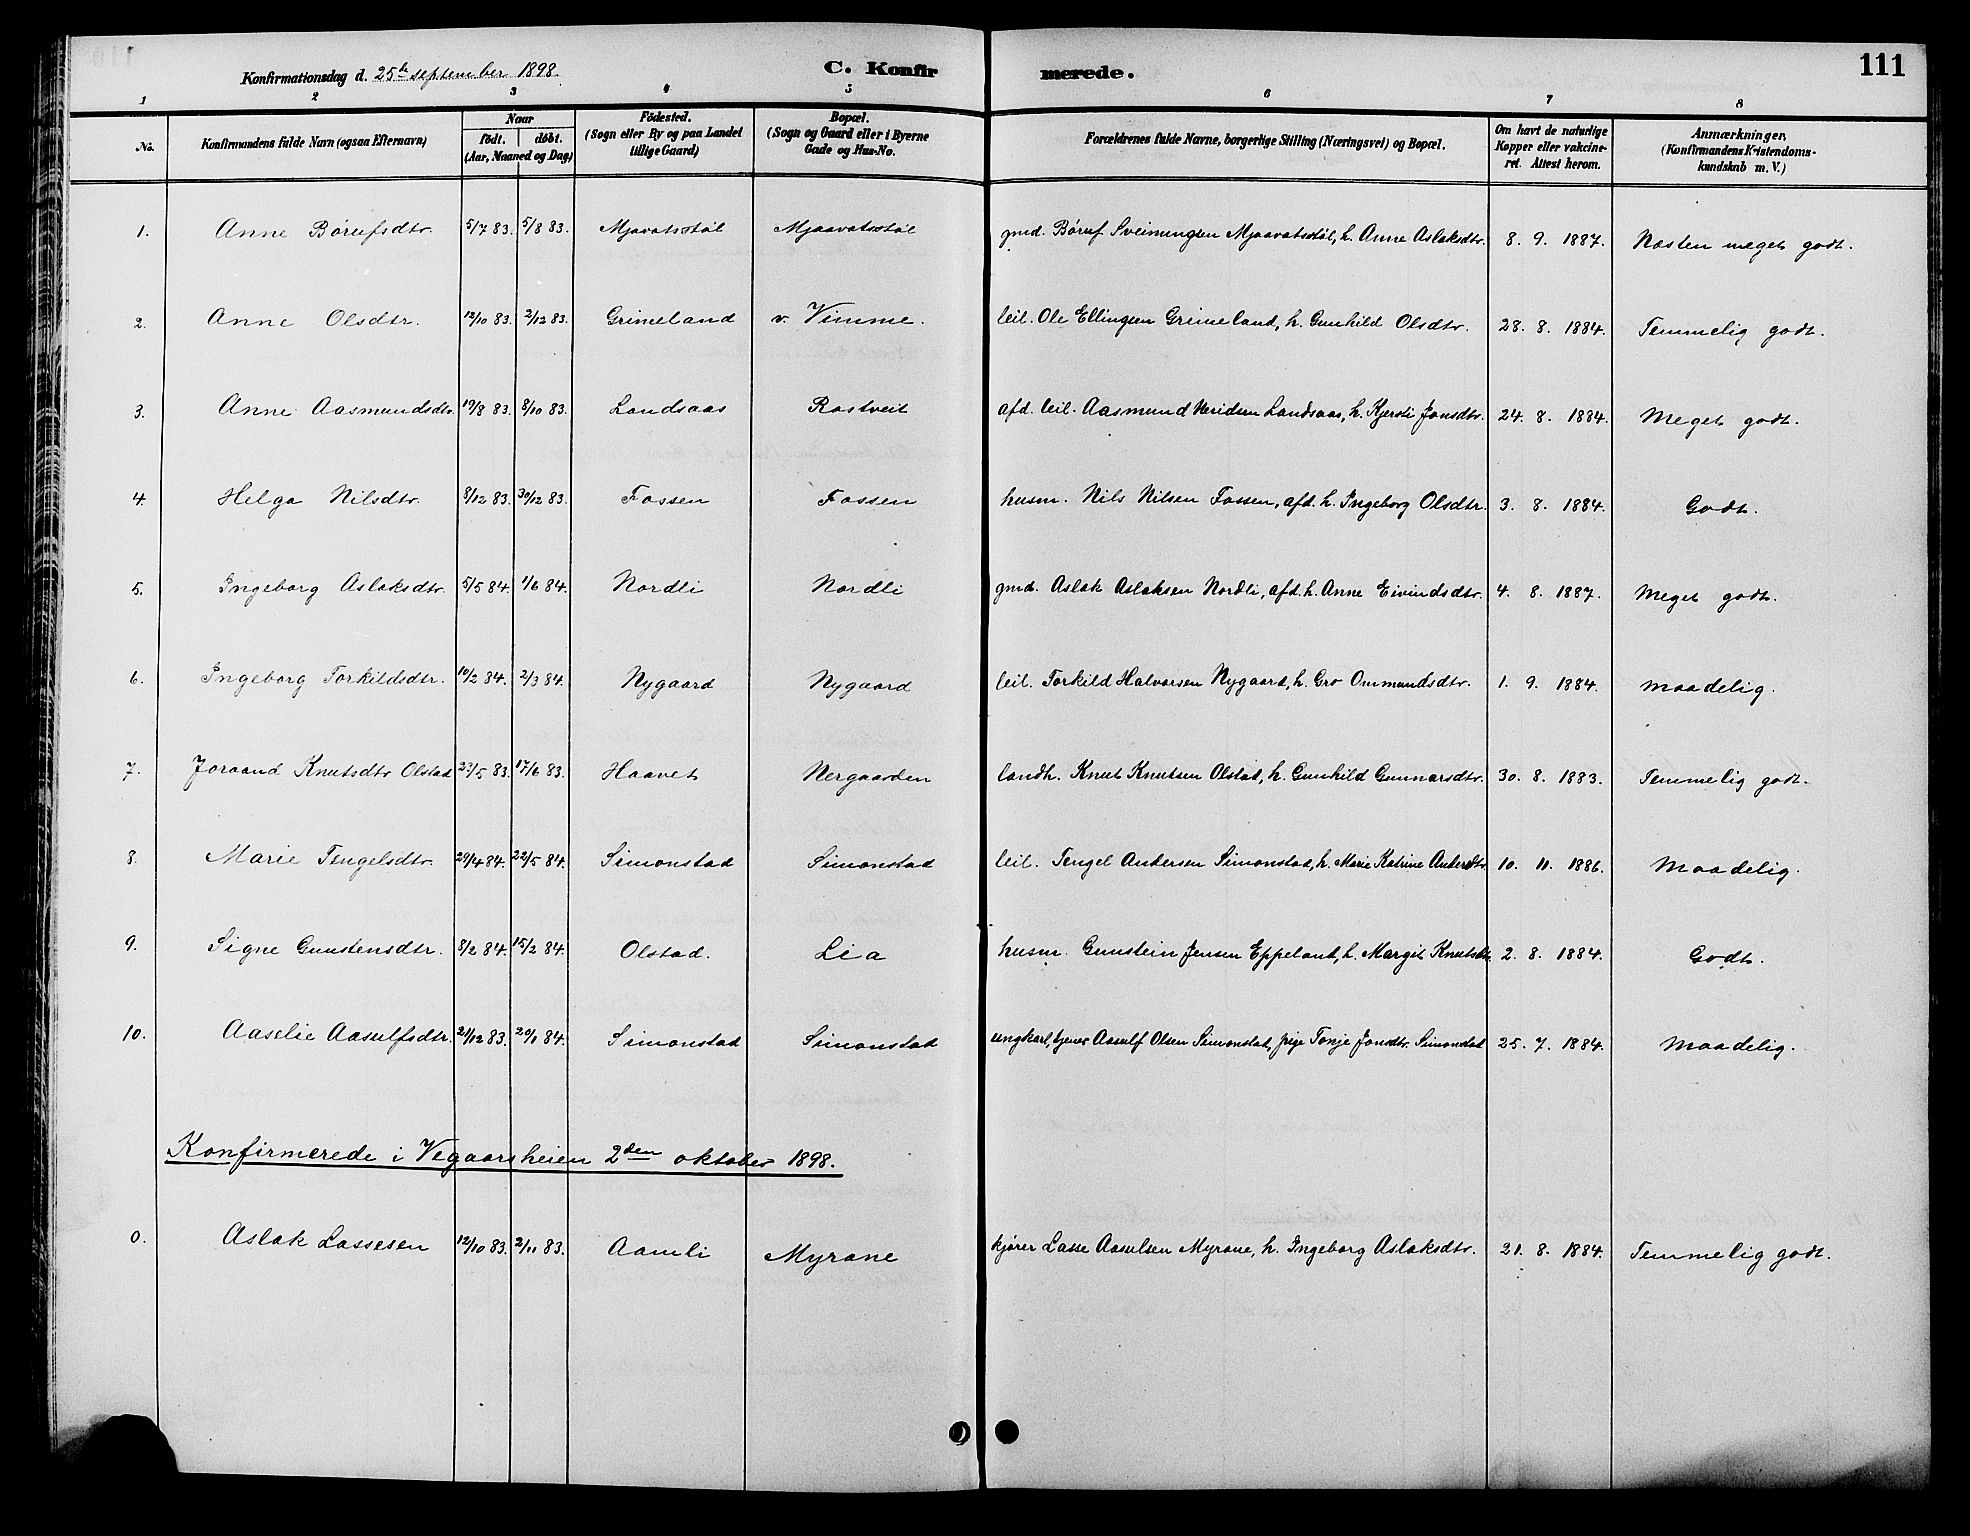 111
Konfirmationsdag d. 25de september 1898.
C. Konfirmerede.
1 2 3 4 5 6 7 8
No. Konfirmandens fulde Navn (ogsaa Efternavn) Naar født. døbt. (Aar, Maaned og Dag) Fødested. (Sogn eller By og paa Landet tillige Gaard) Bopæl. (Sogn og Gaard eller i Byerne Gade og Hus-No. Forældrenes fulde Navne, borgerlige Stilling (Næringsvei) og Bopæl. Om havt de naturlige Kopper eller vakcineret. Attest herom. Anmærkninger. (Konfirmandens Kristendomskundskab m. V.)
1. Anne Børufsdtr. 5/7 83. 5/8 83. Mjavatsstøl Mjaavatsstøl gmd. Børuf Sveinungsen Mjaavatsstøl, h. Anne Aslaksdtr. 8. 9. 1887. Næsten meget godt.
2. Anne Olsdtr. 12/10 83. 2/12 83. Grimeland v. Vimme. leil. Ole Ellingsen Grimeland, h. Gunhild Olsdtr. 28. 8. 1884. Temmelig godt.
3. Anne Aasmundsdtr. 19/8 83. 8/10 83. Landsaas Rastveit afd. leil. Aasmund Neridsen Landsaas, h. Kjersti Jonsdtr. 24. 8. 1884. Meget godt.
4. Helga Nilsdtr. 8/12 83. 30/12 83. Fossen Fossen husm. Nils Nilsen Fossen, afd. h. Ingeborg Olsdtr. 3. 8. 1884. Godt.
5. Ingeborg Aslaksdtr. 5/5 84. 1/6 84. Nordli Nordli gmd. Aslak Aslaksen Nordli, afd. h. Anne Eivindsdtr. 4. 8. 1887. Meget godt.
6. Ingeborg Torkildsdtr. 10/2 84. 2/3 84. Nygaard Nygaard leil. Torkild Halvorsen Nygaard, h. Gro Ommundsdtr. 1. 9. 1884. Maadelig.
7. Joraand Knutsdtr Olstad 23/5 83. 17/6 83. Haavet Nergaarden landh. Knut Knutsen Olstad, h. Gunhild Gunnarsdtr. 30. 8. 1883. Temmelig godt.
8. Marie Tengelsdtr. 29/4 84. 22/5 84. Simonstad Simonstad leil. Tengel Andersen Simonstad, h. Marie Katrine Andersdtr. 10. 11. 1886. Maadelig.
9. Signe Gunstensdtr. 8/2 84. 15/2 84. Olstad. Lia husm. Gunstein Jensen Eppeland, h. Margit Knutsdtr. 2. 8. 1884. Godt.
10. Aaselie Aasulfsdtr. 21/12 83. 20/1 84. Simonstad Simonstad ungkarl, tjener Aasulf Olsen Simonstad, pige Tonje Jonsdtr. Simonstad 25. 7. 1884. Maadelig.
Konfirmerede i Vegaarsheien 2den oktober 1898.
0. Aslak Lassesen 12/10 83. 2/11 83. Aamli Myrane kjører Lasse Aasulsen Myrane, h. Ingeborg Aslaksdtr. 21. 8. 1884. Temmelig godt.